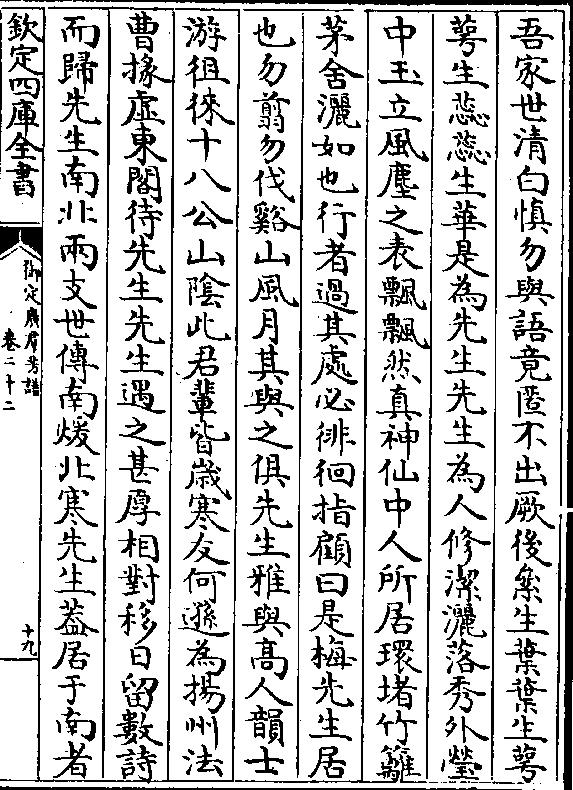 吾家世清白慎勿與語竟匿不出厥後絫生葉葉生萼
萼生蕊蕊生華是為先生先生為人修潔灑落秀外瑩
中玉立風塵之表飄飄然真神仙中人所居環堵竹籬
茅舍灑如也行者過其處必徘徊指顧曰是梅先生居
也勿翦勿伐谿山風月其與之俱先生雅與高人韻士
游徂徠十八公山陰此君輩皆歲寒友何遜為揚州法
曹掾虛東閣待先生先生遇之甚厚相對移日留數詩
而歸先生南北兩支世傳南煖北寒先生葢居于南者
欽定四庫全書
御定廣羣芳譜
卷二十二
十九